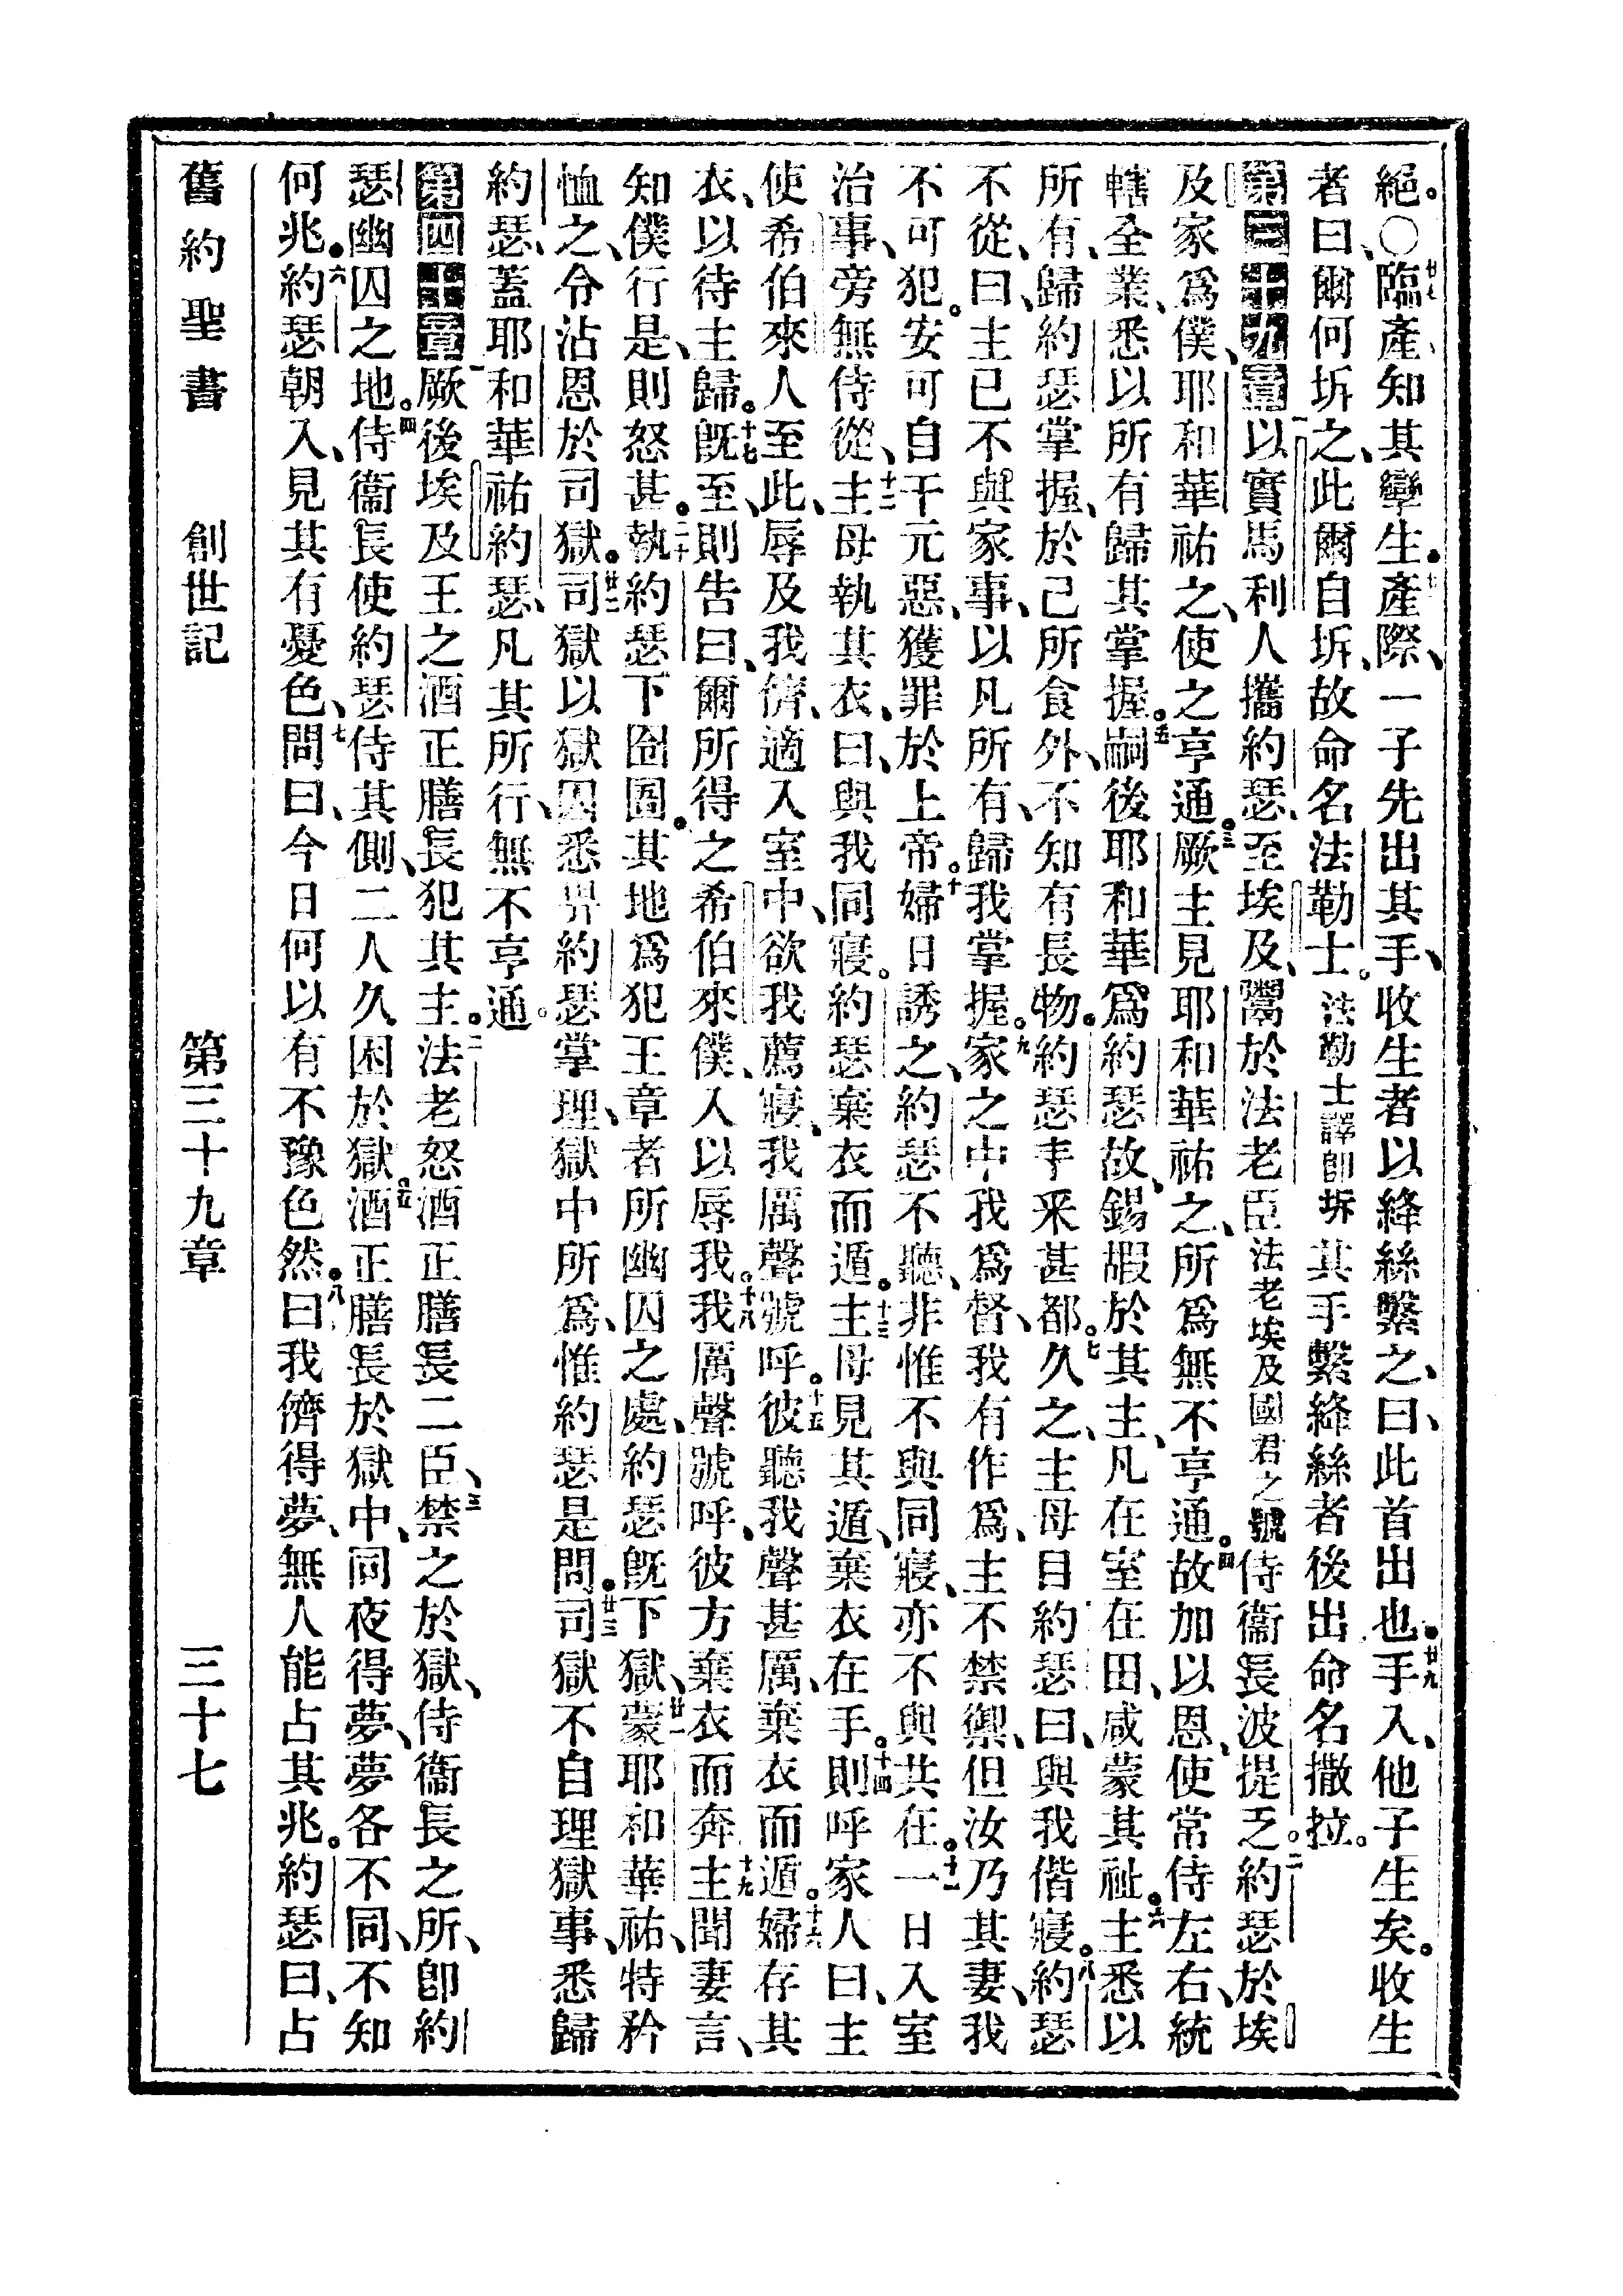 絕。〇廿七臨產、知其孿生。廿八產際、一子先出其手、收生者以絳絲繫之、曰、此首出也。廿九手入、他子生矣。收生
者曰、爾何坼之、此爾自坼、故命名法勒士。法勒士譯卽坼其手繫絳絲者後出命名撒拉。
第三十九章一以實馬利人攜約瑟、至埃及、鬻於法老臣法老埃及國君之號侍衞長波提乏。二約瑟於埃
及家爲僕、耶和華祐之、使之亨通。三厥主見耶和華祐之、所爲無不亨通。四故加以恩、使常侍左右、統
轄全業、悉以所有歸其掌握。五嗣後耶和華爲約瑟故、錫嘏於其主、凡在室在田、咸蒙其祉。六主悉以
所有、歸約瑟掌握、於己所食外、不知有長物。約瑟丰釆甚都。七久之、主母目約瑟曰、與我偕寢。八約瑟
不從、曰、主已不與家事、以凡所有、歸我掌握。九家之中我爲督、我有作爲、主不禁禦、但汝乃其妻、我
不可犯。安可自干元惡、獲罪於上帝。十婦日誘之、約瑟不聽、非惟不與同寢、亦不與共在。十一一日入室
治事、旁無侍從、十二主母執其衣、曰、與我同寢。約瑟棄衣而遁。十三主母見其遁、棄衣在手。十四則呼家人曰、主
使希伯來人至此、辱及我儕、適入室中、欲我薦寢、我厲聲號呼。十五彼聽我聲甚厲、棄衣而遁。十六婦存其
衣、以待主歸。十七旣至、則告曰、爾所得之希伯來僕、入以辱我。十八我厲聲號呼、彼方棄衣而奔、十九主聞妻言、
知僕行是、則怒甚。二十執約瑟下囹圄。其地爲犯王章者所幽囚之處、約瑟旣下獄、廿一蒙耶和華祐、特矜
恤之、令沾恩於司獄。廿二司獄以獄囚悉畀約瑟掌理、獄中所爲、惟約瑟是問。廿三司獄不自理獄事、悉歸
約瑟、蓋耶和華祐約瑟、凡其所行、無不亨通。
第四十章一厥後埃及王之酒正膳長犯其主。二法老怒酒正膳長二臣、三禁之於獄、侍衞長之所、卽約
瑟幽囚之地。四侍衞長使約瑟侍其側、二人久困於獄。五酒正膳長於獄中、同夜得夢、夢各不同、不知
何兆。六約瑟朝入、見其有憂色、七問曰、今日何以有不豫色然。八曰我儕得夢、無人能占其兆。約瑟曰、占
舊約聖書 創世記 第三十九章 三十七